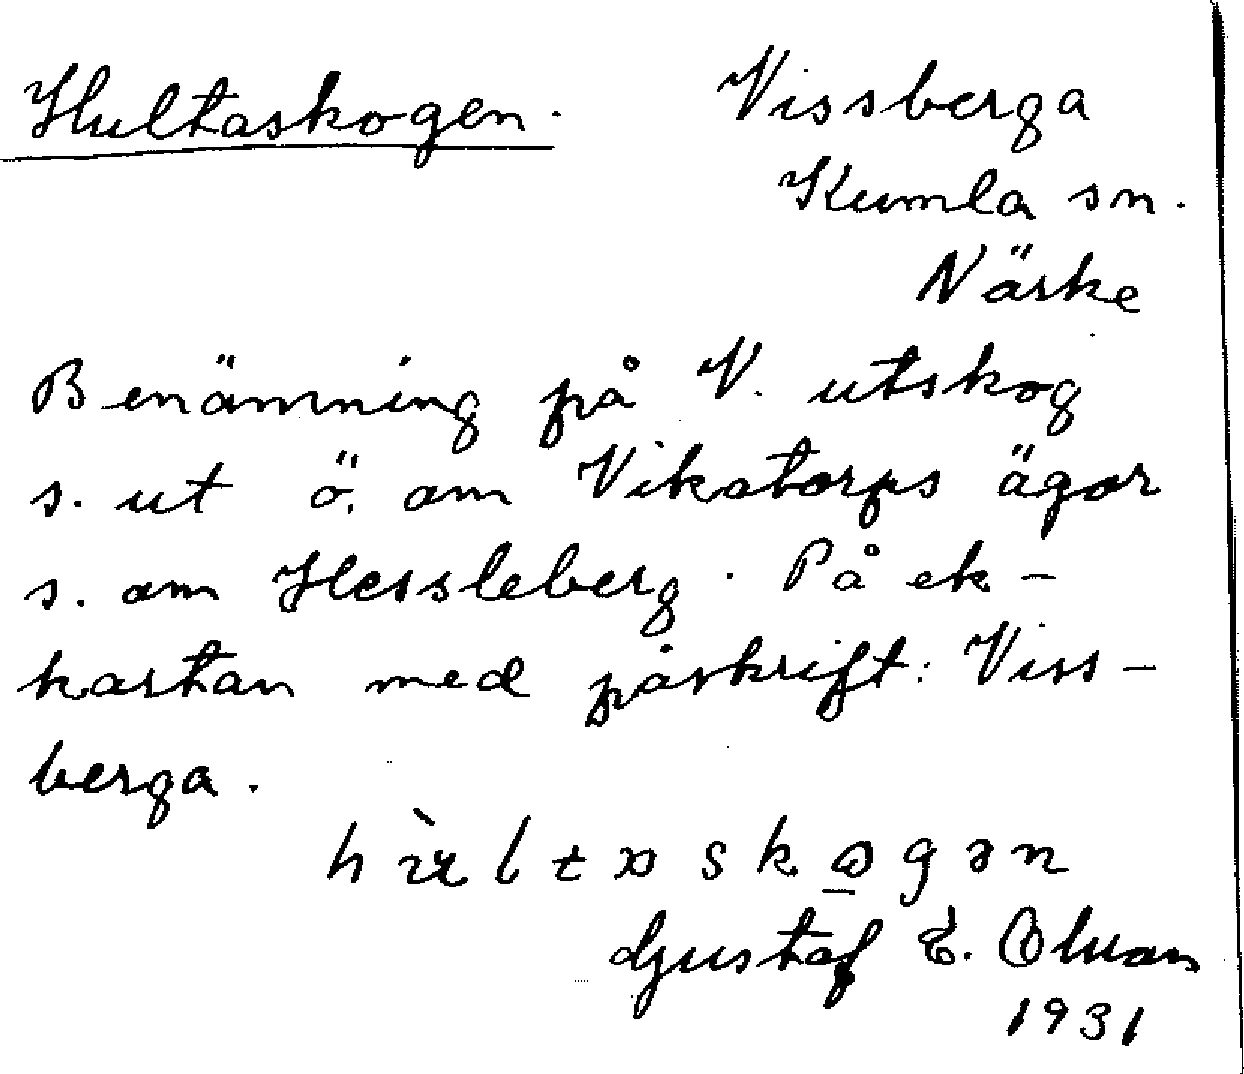 Hultaskogen.
Vissberga
Kumla sn.
Närke
Benämning på V. utskog
s. ut ö. om Vikatorps ägor
s. om Hessleberg. På ek-
kartan med påskrift: Viss-
berga.
Gustaf E.
1931